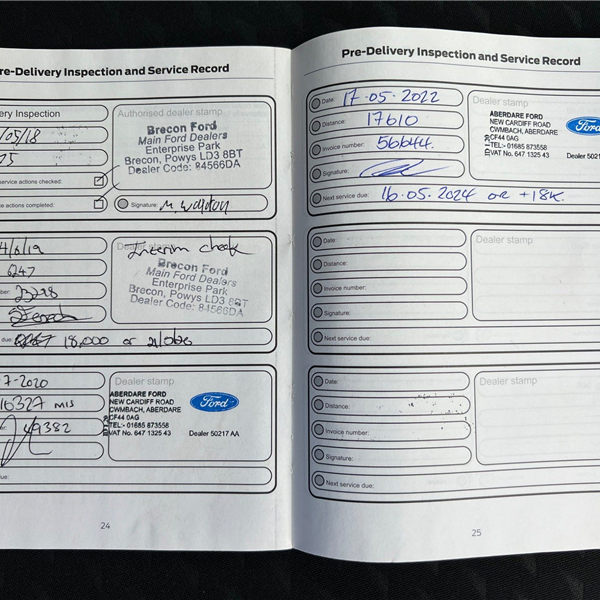 re-Delivery Inspection and Service Record
ery Inspection
/05/18
15
service actions checked:
e actions completed:
Authorised dealer stamp
Brecon Ford
Main Ford Dealers
Enterprise Park
Brecon, Powys LD3 8BT
Dealer Code: 84566DA
Signature: M Walton
4/6/19
6247
ber: 23298
due: 18,000 or
Dealer stamp
Interim check
Brecon Ford
Main Ford Dealers
Enterprise Park
Brecon, Powys LD3 8BT
Dealer Code: 84566DA
7-2020
16327 MIS
49382
ue:
Dealer stamp
ABERDARE FORD
NEW CARDIFF ROAD
CWMBACH, ABERDARE
CF44 0AG
TEL:- 01685 873558
VAT No. 647 1325 43
Ford
Dealer 50217 AA
24
Pre-Delivery Inspection and Service Record
Date: 17-05-2022
Distance: 17610
Invoice number: 56644.
Signature:
Next service due: 16.05.2024 or +18K.
Dealer stamp
ABERDARE FORD
NEW CARDIFF ROAD
CWMBACH, ABERDARE
CF44 0AG
TEL:- 01685 873558
VAT No. 647 1325 43
Ford
Dealer 5021
Date:
Distance:
Invoice number:
Signature:
Next service due:
Dealer stamp
Date:
Distance:
Invoice number:
Signature:
Next service due:
Dealer stamp
25